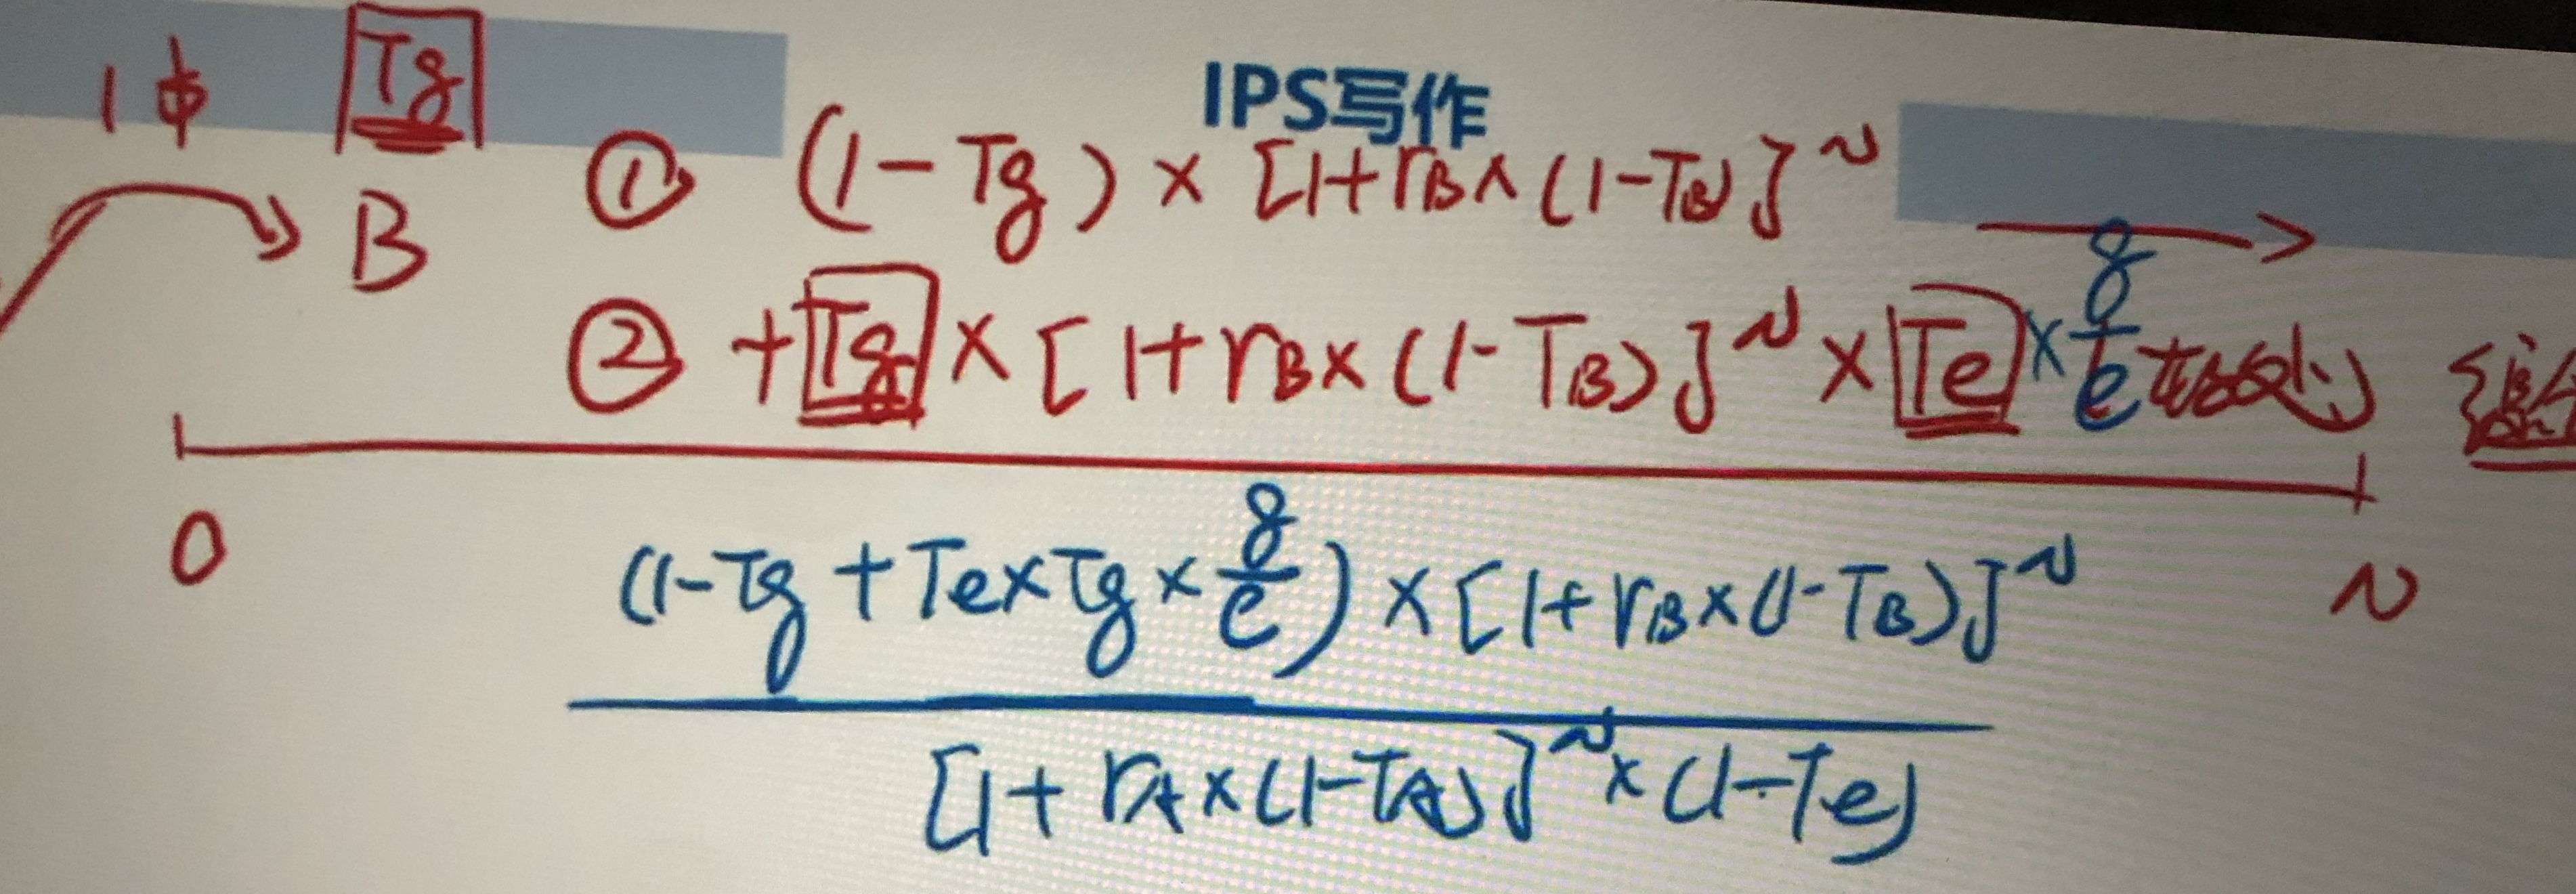 IPS写作
1$ Tg
B
① (1-Tg) × [1+rB×(1-TB)]^N
② +Tg × [1+rB×(1-TB)]^N × Te × g/e
0 N
(1-Tg+Te×Tg×g/e) × [1+rB×(1-TB)]^N
[1+rA×(1-TA)]^N×(1-Te)